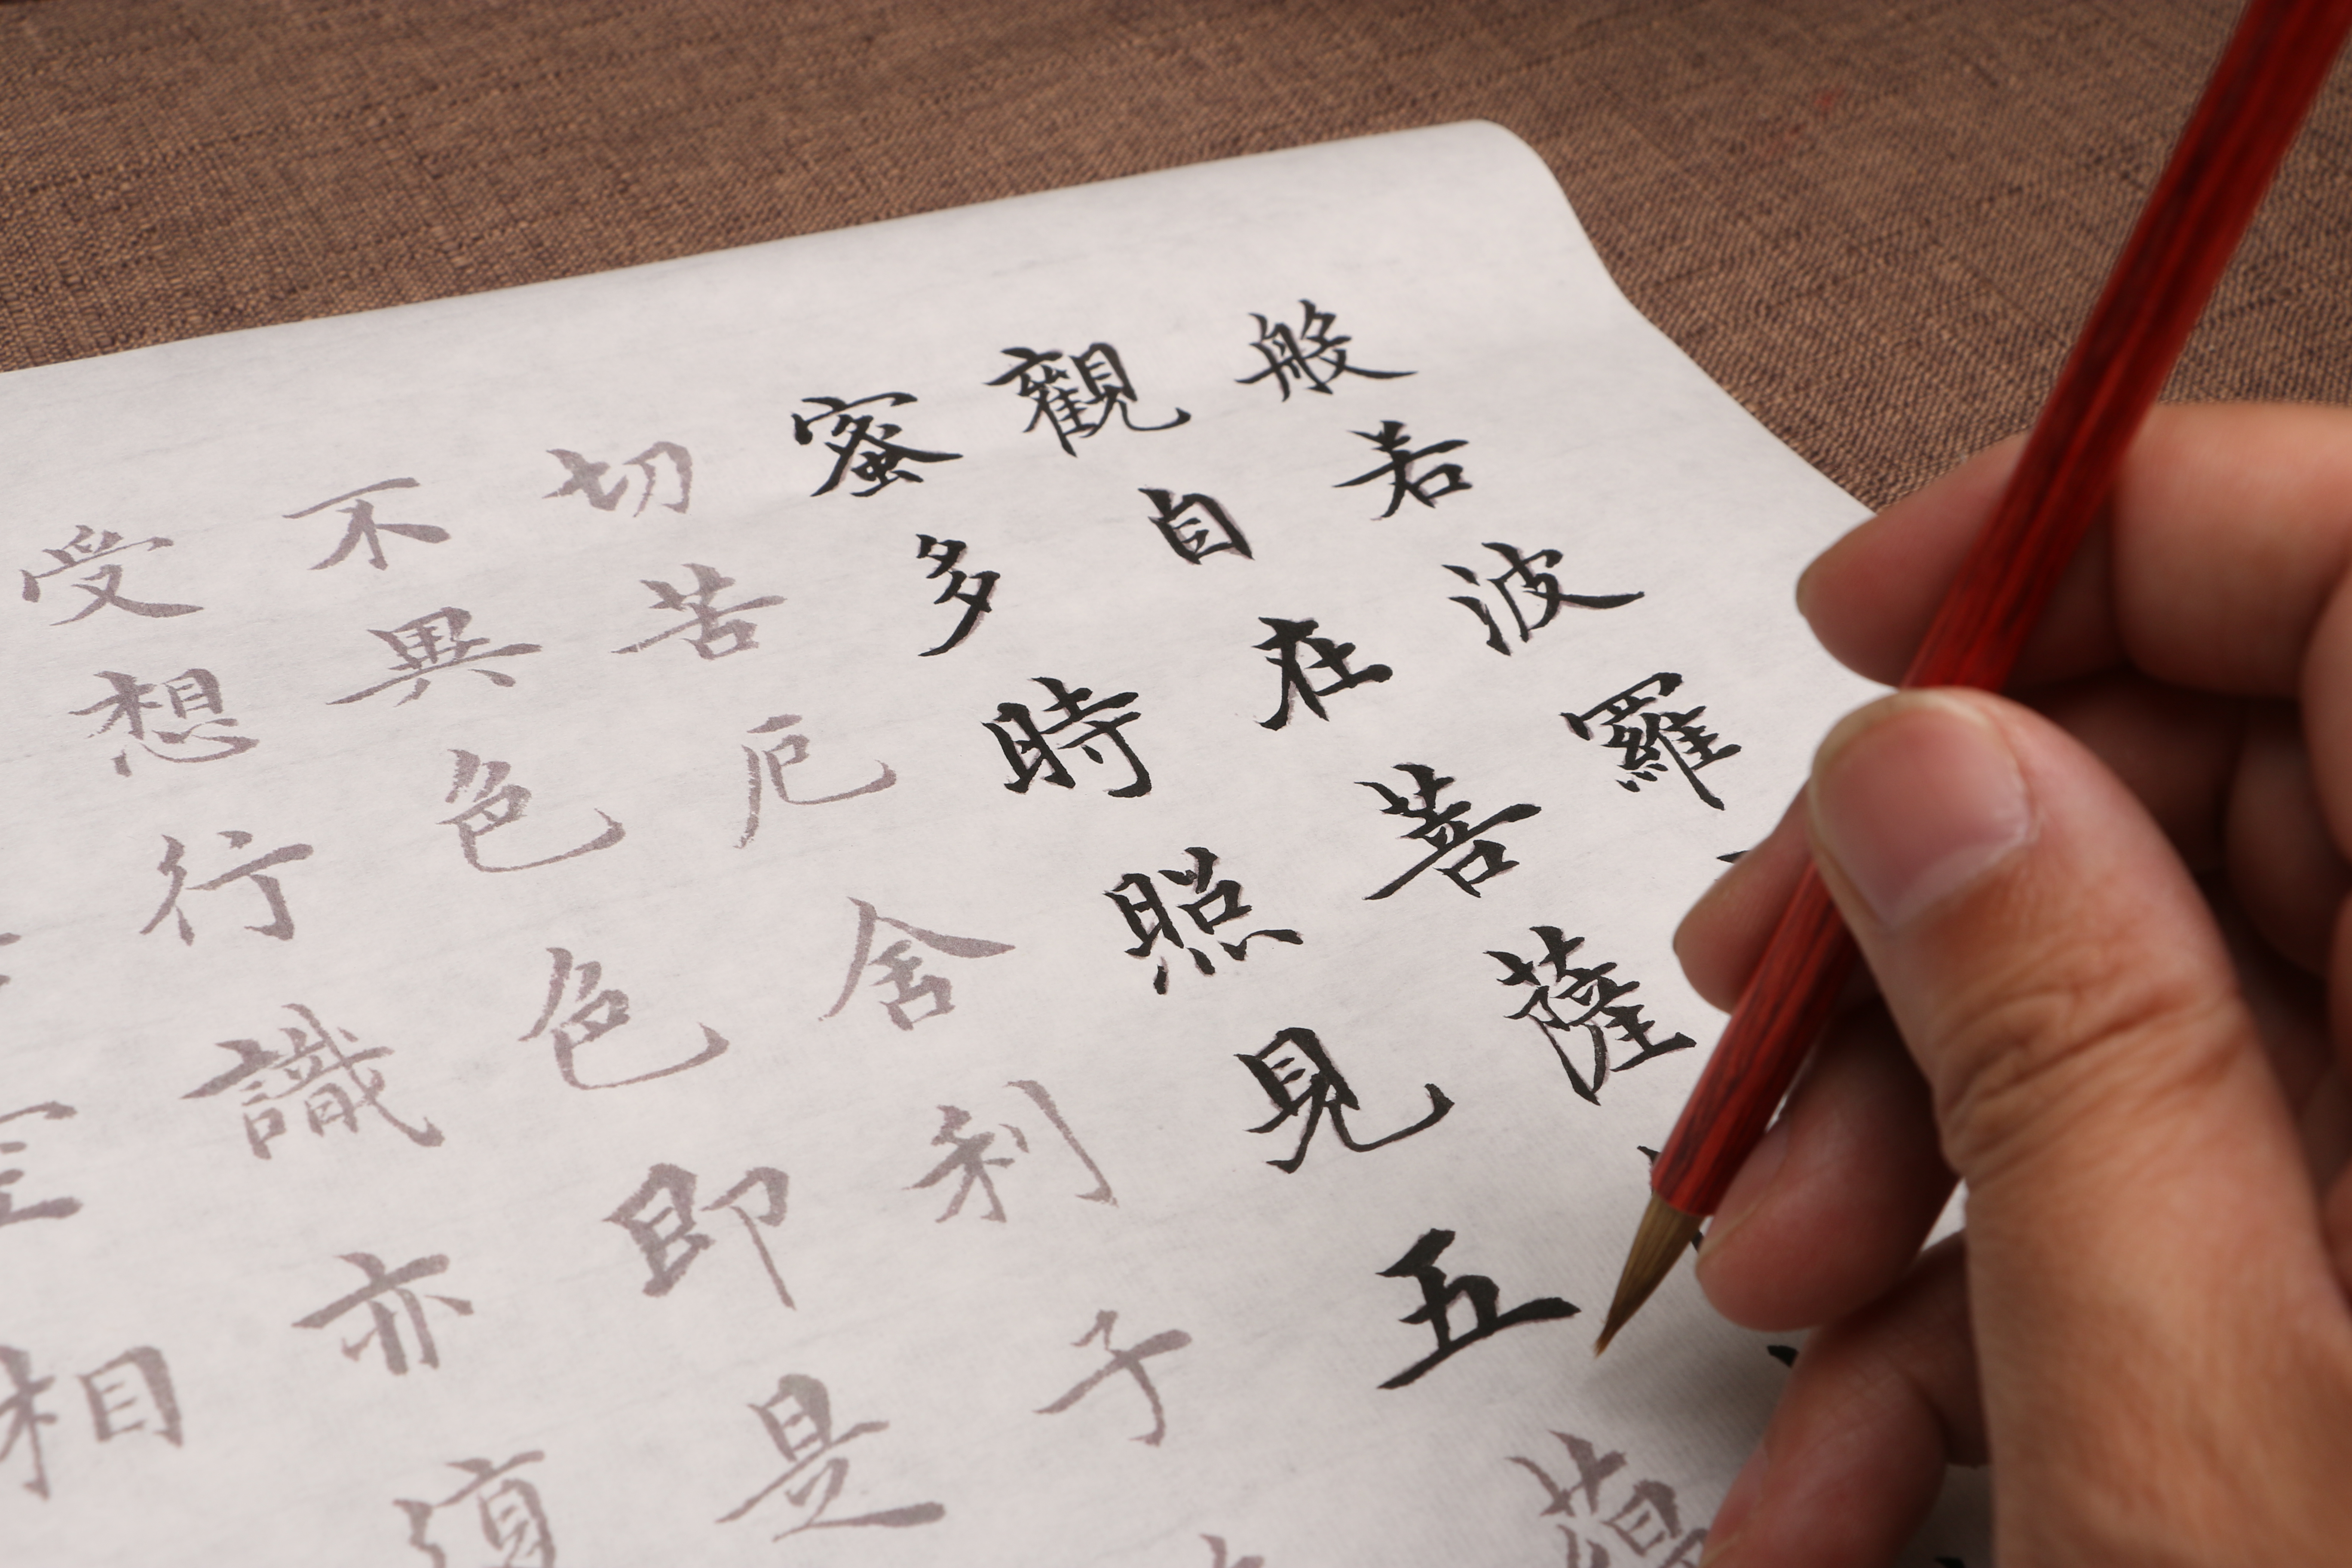 般若波羅
觀自在菩薩
蜜多時照見五蘊
切苦厄舍利子
不異色色即是
受想行識亦
相